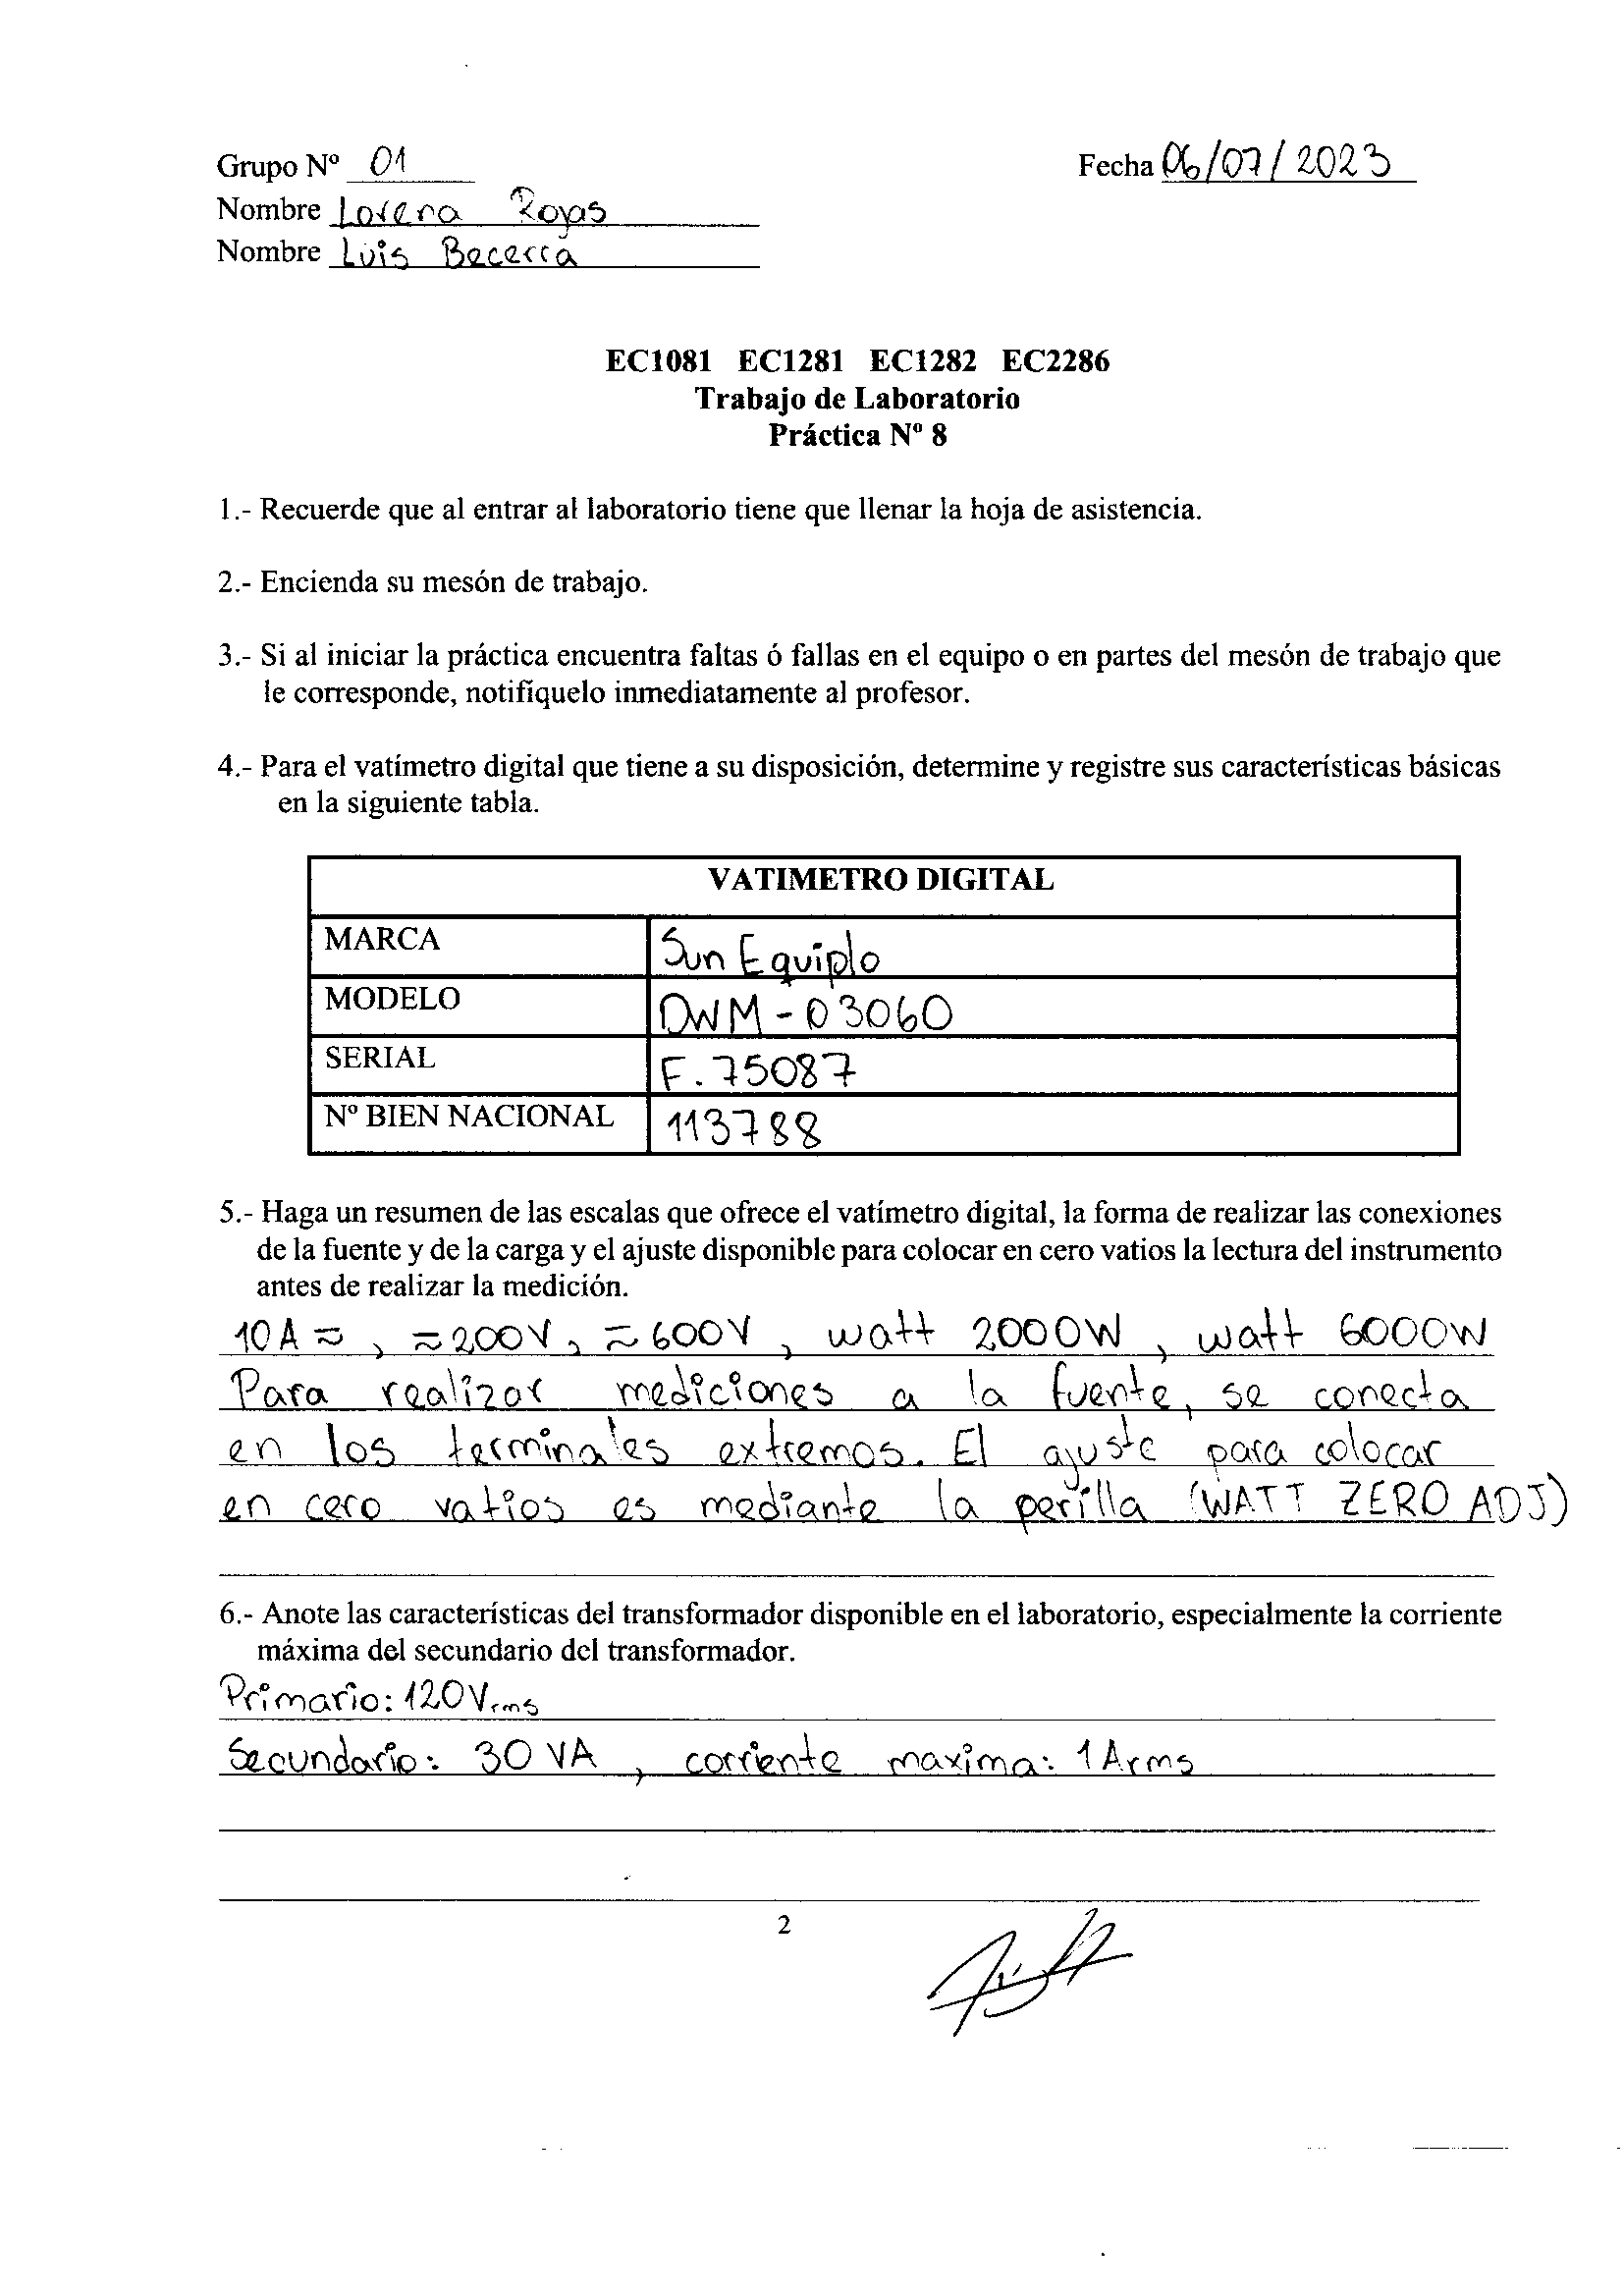 Grupo Nº 01 Fecha 06/07/2023
Nombre Lorena Rojas
Nombre Luis Becerra
EC1081 EC1281 EC1282 EC2286
Trabajo de Laboratorio
Práctica Nº 8
1.- Recuerde que al entrar al laboratorio tiene que llenar la hoja de asistencia.
2.- Encienda su mesón de trabajo.
3.- Si al iniciar la práctica encuentra faltas ó fallas en el equipo o en partes del mesón de trabajo que
le corresponde, notifíquelo inmediatamente al profesor.
4.- Para el vatímetro digital que tiene a su disposición, determine y registre sus características básicas
en la siguiente tabla.
VATIMETRO DIGITAL
MARCA Sun Equiplo
MODELO DWM-03060
SERIAL F.75087
Nº BIEN NACIONAL 113788
5.- Haga un resumen de las escalas que ofrece el vatímetro digital, la forma de realizar las conexiones
de la fuente y de la carga y el ajuste disponible para colocar en cero vatios la lectura del instrumento
antes de realizar la medición.
10A ≂, ≂200V, ≂600V, watt 2000W, watt 6000W
Para realizar mediciones a la fuente, se conecta
en los terminales extremos. El ajuste para colocar
en cero vatios es mediante la perilla (WATT ZERO ADJ)
6.- Anote las características del transformador disponible en el laboratorio, especialmente la corriente
máxima del secundario del transformador.
Primario: 120Vrms
Secundario: 30 VA, corriente maxima: 1 Arms
2